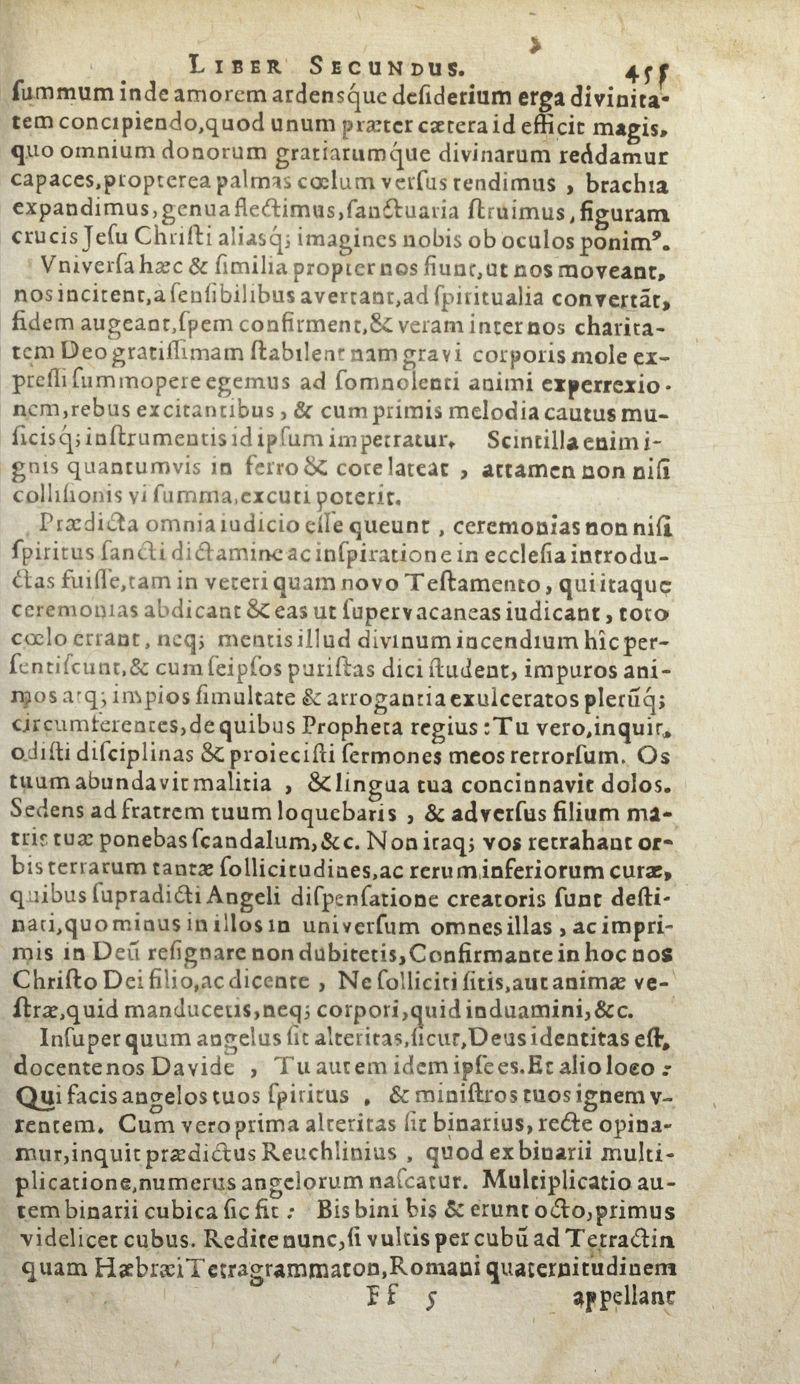 LIBER SECUNDUS. 455
ſummum inde amorem ardensque deſiderium erga divinita-
tem concipiendo,quod unum præter cætera id efficit magis,
quo omnium donorum gratiarumque divinarum reddamur
capaces,propterea palmas cœlum verſus tendimus , brachia
expandimus,genua flectimus,ſanctuaria ſtruimus,figuram
crucis Jeſu Chriſti aliasq; imagines nobis ob oculos ponimꝰ.
Vniverſa hæc & ſimilia propter nos fiunt,ut nos moveant,
nos incitent,a ſenſibilibus avertant,ad ſpiritualia convertāt,
fidem augeant,ſpem confirment,& veram inter nos charita-
tem Deo gratiſſimam ſtabilent nam gravi corporis mole ex-
preſſi ſummopere egemus ad ſomnolenti animi experrexio-
nem,rebus excitantibus , & cum primis melodia cautus mu-
ſicisq; inſtrumentis id ipſum impetratur, Scintilla enim i-
gnis quantumvis in ferro & cote lateat , attamen non niſi
colliſionis vi ſumma,excuti poterit.
Prædicta omnia iudicio eſſe queunt , ceremonias non niſi
ſpiritus ſancti dictamine ac inſpiratione in eccleſia introdu-
ctas fuiſſe,tam in veteri quam novo Teſtamento, qui itaque
ceremonias abdicant & eas ut ſupervacaneas iudicant , toto
cœlo errant, neq; mentis illud divinum incendium hîc per-
ſentiſcunt,& cum ſeipſos puriſtas dici ſtudent, impuros ani-
mos atq; impios ſimultate & arrogantia exulceratos plerūq;
circumferentes,de quibus Propheta regius :Tu vero,inquit,
odiſti diſciplinas & proieciſti ſermones meos retrorſum. Os
tuum abundavit malitia , & lingua tua concinnavit dolos.
Sedens ad fratrem tuum loquebaris , & adverſus filium ma-
tris tuæ ponebas ſcandalum,&c. Non itaq; vos retrahant or-
bis terrarum tantæ ſollicitudines,ac rerum inferiorum curæ,
quibus ſupradicti Angeli diſpenſatione creatoris ſunt deſti-
nati,quominus in illos in univerſum omnes illas , ac impri-
mis in Deū reſignare non dubitetis,Confirmante in hoc nos
Chriſto Dei filio,ac dicente , Ne ſolliciti ſitis,aut animæ ve-
ſtræ,quid manducetis,neq; corpori,quid induamini,&c.
Inſuper quum angelus ſit alteritas,ſicut,Deus identitas eſt,
docente nos Davide , Tu autem idem ipſe es.Et alio loco :
Qui facis angelos tuos ſpiritus , & miniſtros tuos ignem v-
rentem. Cum vero prima alteritas ſit binarius, recte opina-
mur,inquit prædictus Reuchlinius , quod ex binarii multi-
plicatione,numerus angelorum naſcatur. Multiplicatio au-
tem binarii cubica ſic fit : Bis bini bis & erunt octo,primus
videlicet cubus. Redite nunc,ſi vultis per cubū ad Tetractin
quam HæbræiTetragrammaton,Romani quaternitudinem
Ff 5 appellant